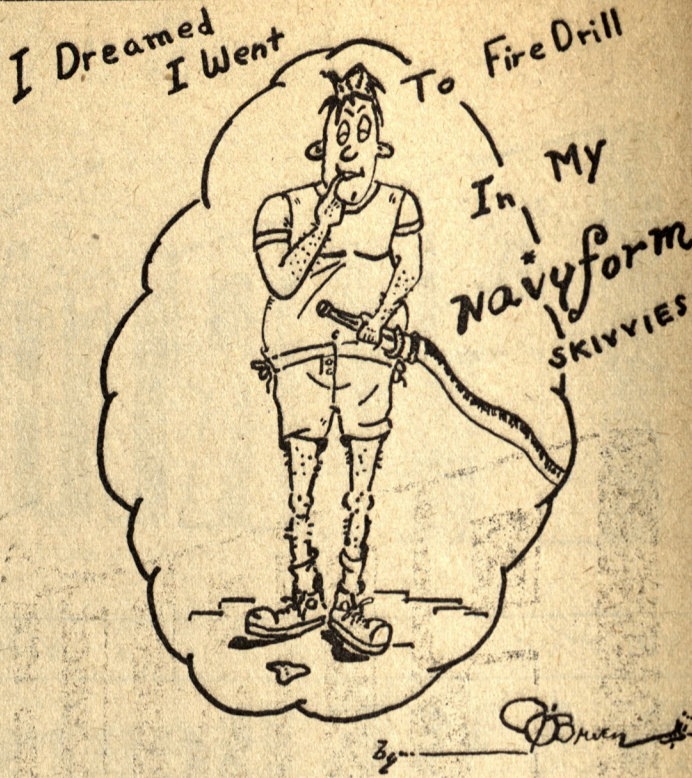 I Dreamed
I Went
To Fire Drill
In My
Navyform
SKIVVIES
by O'Brien